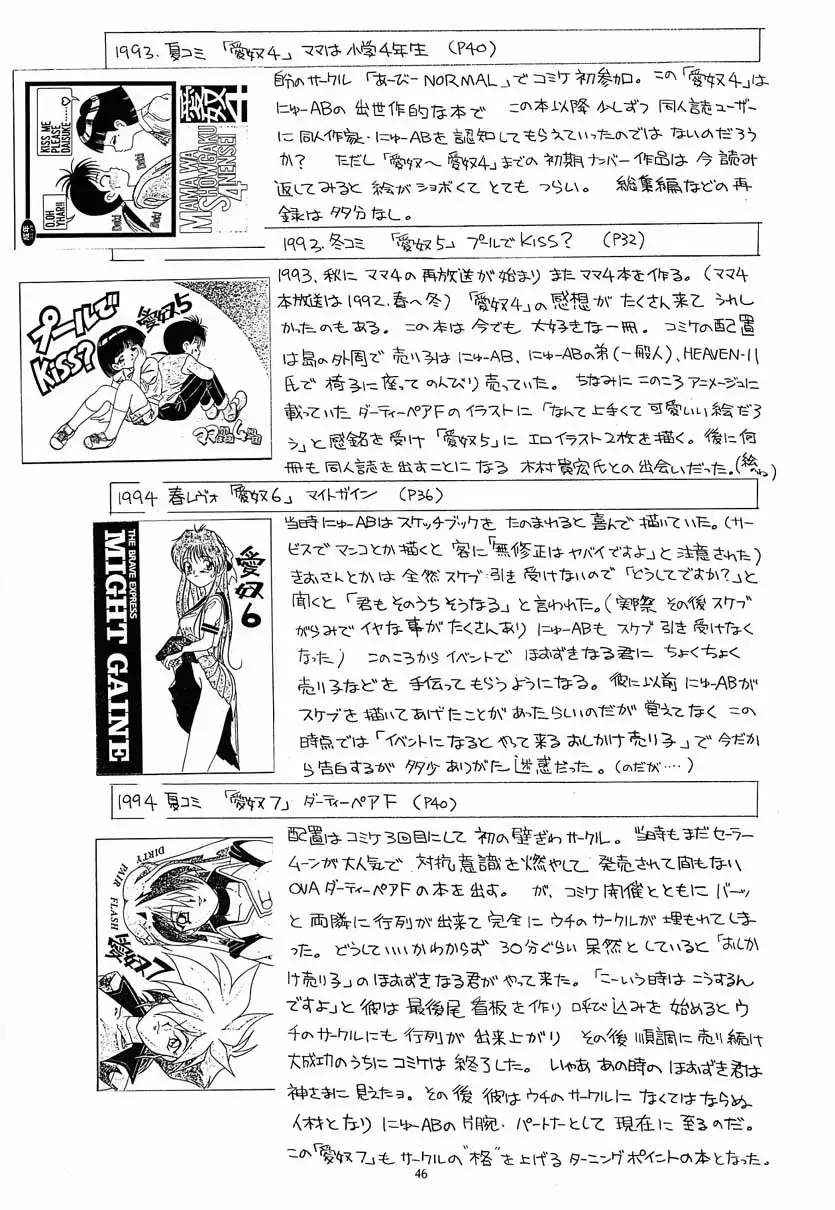 1993. 夏コミ 「愛奴4」 ママは小学4年生 (P40)
KISS ME
PLEASE
DAISUKE……♡
Doki
Doki
Doki
O,OH
YHAR!!
愛奴4
MAMA WA
SHOWGAKU
4NENSEI
自分のサークル「あーびーNORMAL」でコミケ初参加。この「愛奴4」は
にゅーABの出世作的な本で この本以降少しずつ同人誌ユーザー
に同人作家・にゅーABを認知してもらえていったのではないのだろう
か? ただし「愛奴〜愛奴4」までの初期ナンバー作品は今読み
返してみると絵がショボくてとてもつらい。 総集編などの再
録は多分なし。
1993.冬コミ 「愛奴5」プールでKiss? (P32)
プールで
Kiss?
愛奴5
1993,秋にママ4の再放送が始まりまたママ4本を作る。(ママ4
本放送は1992.春〜冬)「愛奴4」の感想がたくさん来てうれし
かったのもある。この本は今でも大好きな一冊。コミケの配置
は島の外周で売り子はにゅーAB、にゅーABの弟(一般人)、HEAVEN-11
氏で椅子に座ってのんびり売っていた。ちなみにこのころアニメージュに
載っていたダーティーペアFのイラストに「なんて上手くて可愛いい絵だろ
う」と感銘を受け「愛奴5」にエロイラスト2枚を描く。後に何
冊も同人誌を出すことになる木村貴宏氏との出会いだった。(絵のね)
1994 春レヴォ「愛奴6」マイトガイン (P36)
THE BRAVE EXPRESS
MIGHT GAINE
愛奴6
当時にゅーABはスケッチブックをたのまれると喜んで描いていた。(サー
ビスでマンコとか描くと客に「無修正はヤバイですよ」と注意された)
きおさんとかは全然スケブ引き受けないので「どうしてですか?」と
聞くと「君もそのうちそうなる」と言われた。(実際その後スケブ
がらみでイヤな事がたくさんありにゅーABもスケブ引き受けなく
なった)このころからイベントでほおずきなる君にちょくちょく
売り子などを手伝ってもらうようになる。彼に以前にゅーABが
スケブを描いてあげたことがあったらしいのだが覚えてなくこの
時点では「イベントになるとやって来るおしかけ売り子」で今だか
ら告白するが多少ありがた迷惑だった。(のだが‥‥)
1994 夏コミ 「愛奴7」ダーティーペアF (P40)
DIRTY
PAIR
FLASH
愛奴7
配置はコミケ3回目にして初の壁ぎわサークル。当時もまだセーラー
ムーンが大人気で対抗意識を燃やして発売されて間もない
OVAダーティーペアFの本を出す。が、コミケ開催とともにバーッ
と両隣に行列が出来て完全にウチのサークルが埋もれてしま
った。どうしていいかわからず30分ぐらい呆然としていると「おしか
け売り子」のほおずきなる君がやって来た。「こーいう時はこうするん
ですよ」と彼は最後尾看板を作り呼び込みを始めるとウ
チのサークルにも行列が出来上がりその後順調に売り続け
大成功のうちにコミケは終了した。いやああの時のほおずき君は
神さまに見えたョ。その後彼はウチのサークルになくてはならぬ
人材となりにゅーABの片腕・パートナーとして現在に至るのだ。
この「愛奴7」もサークルの"格"を上げるターニングポイントの本となった。
46